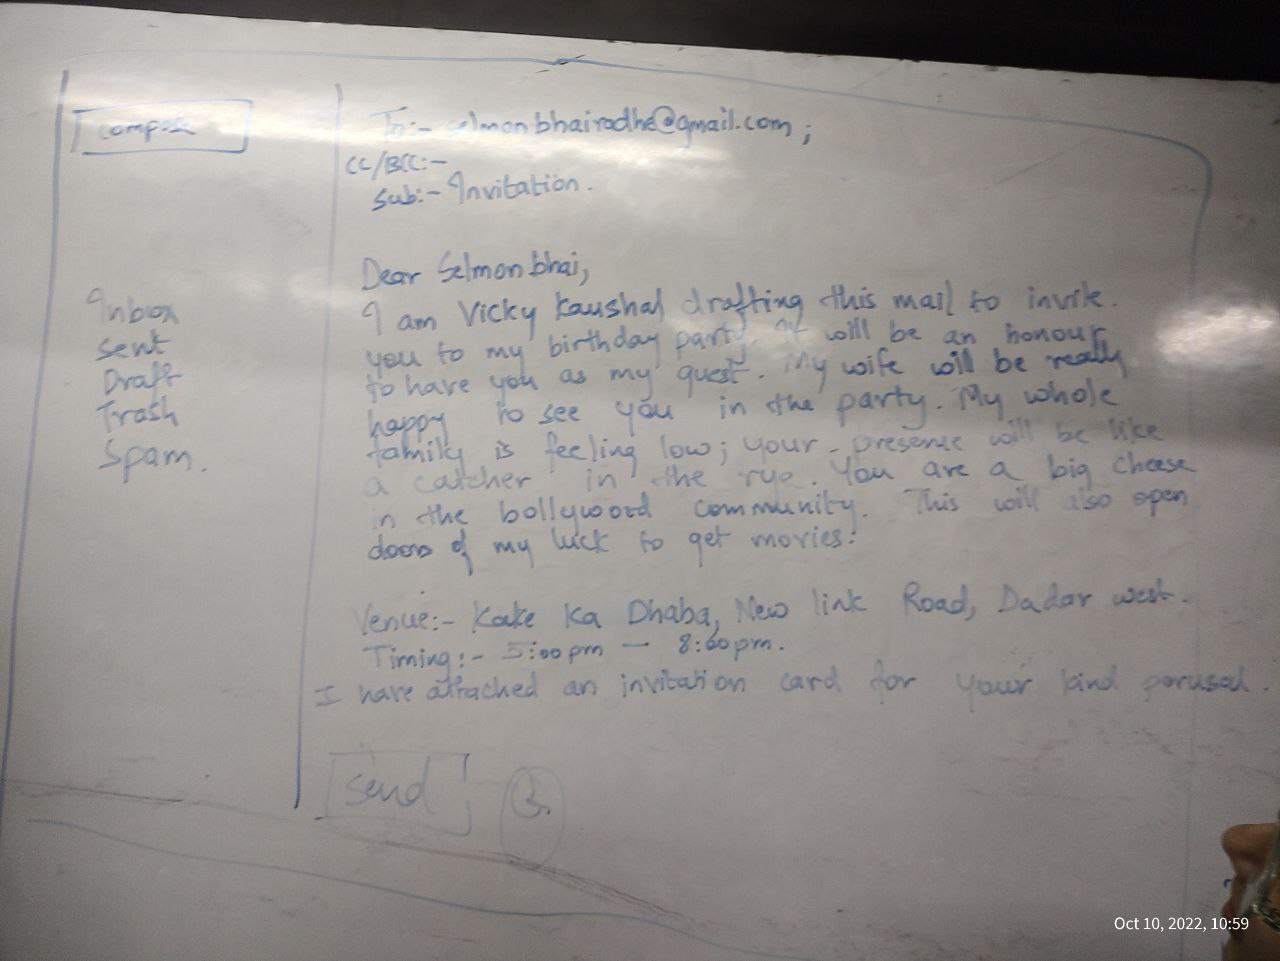 compose
Inbox
sent
Draft
Trash
Spam.
To:- selmonbhairadhe@gmail.com;
CC/BCC:-
Sub:- Invitation.
Dear Selmon bhai,
I am Vicky Kaushal drafting this mail to invite
you to my birthday party. It will be an honour
to have you as my guest. My wife will be really
happy to see you in the party. My whole
family is feeling low; your presence will be like
a catcher in the rye. You are a big cheese
in the bollywood community. This will also open
doors of my luck to get movies.
Venue:- Kake Ka Dhaba, New link Road, Dadar west.
Timing:- 5:00pm - 8:00pm.
I have attached an invitation card for your kind perusal.
Send
Oct 10, 2022, 10:59